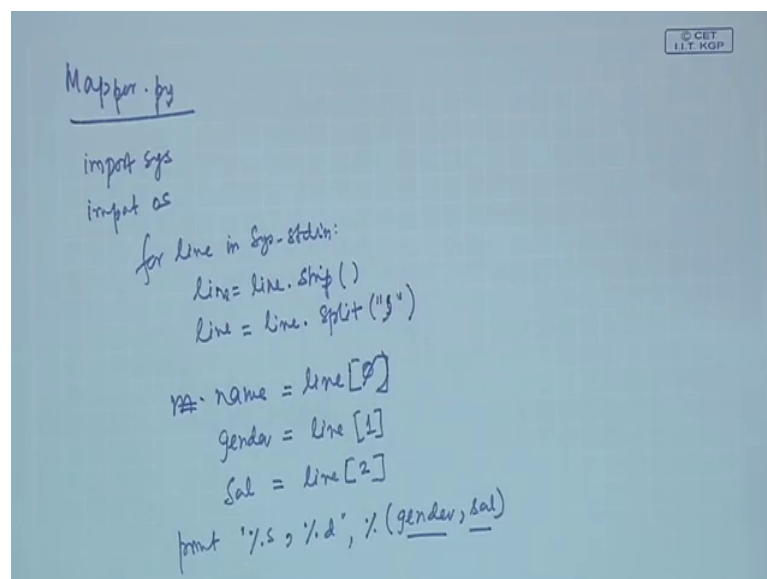 © CET
I.I.T. KGP
Mapper.py
import sys
import os
for line in sys.stdin:
line = line.strip()
line = line.split(",")
name = line[0]
gender = line[1]
sal = line[2]
print '%s, %d', %(gender, sal)